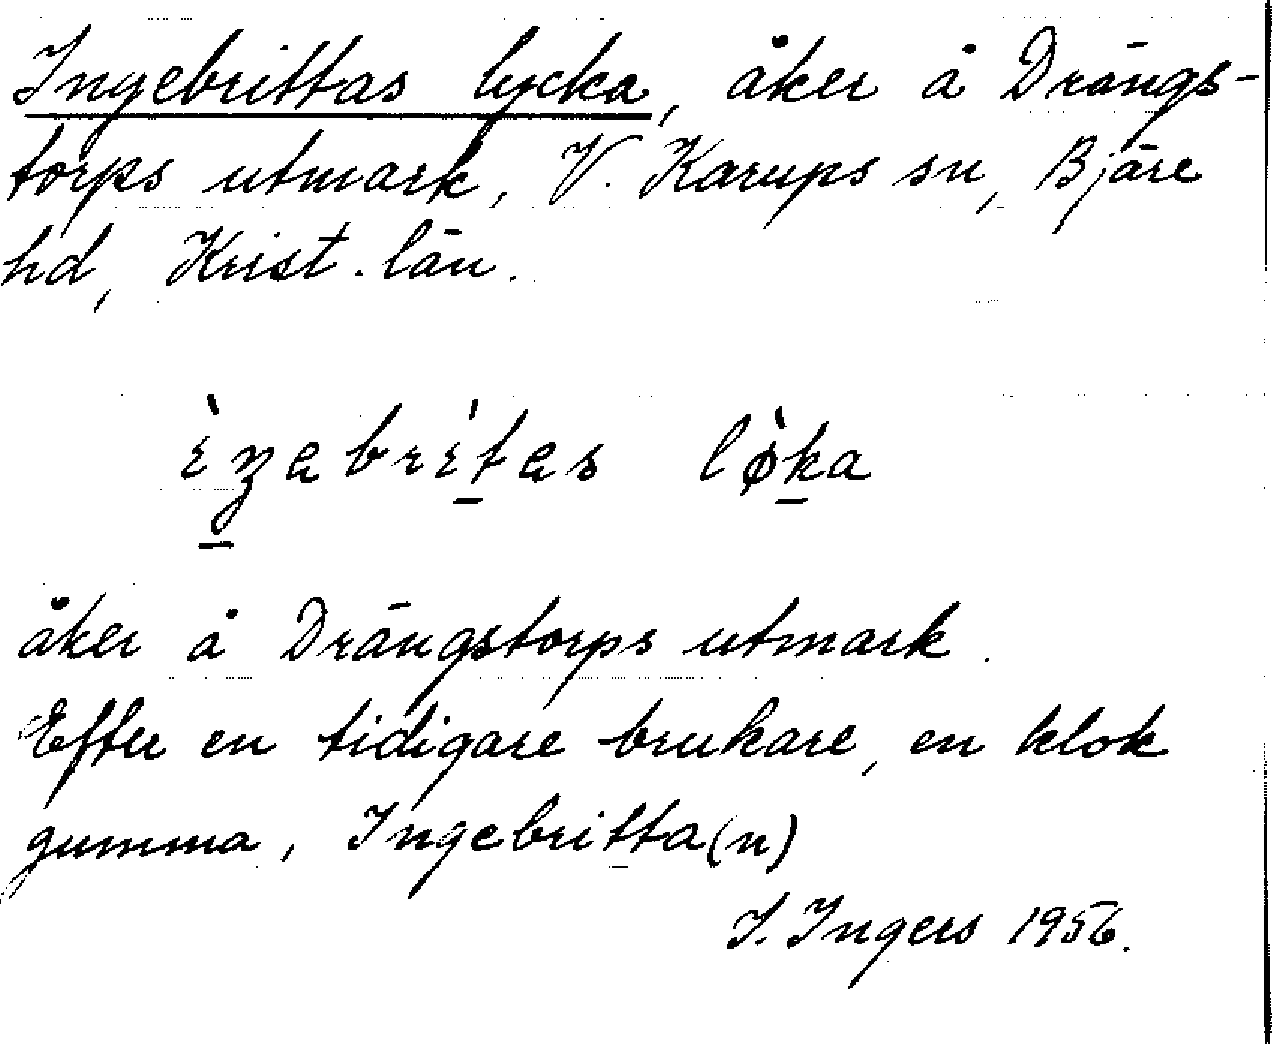 Ingebrittas lycka, åker å Drängs-
torps utmark, V. Karups sn, Bjäre
hd, Krist. län.
ìŋabrítas lø̀ka
åker å Drängstorps utmark.
Efter en tidigare brukare, en klok
gumma, Ingebritta(n)
I. Ingers 1956.